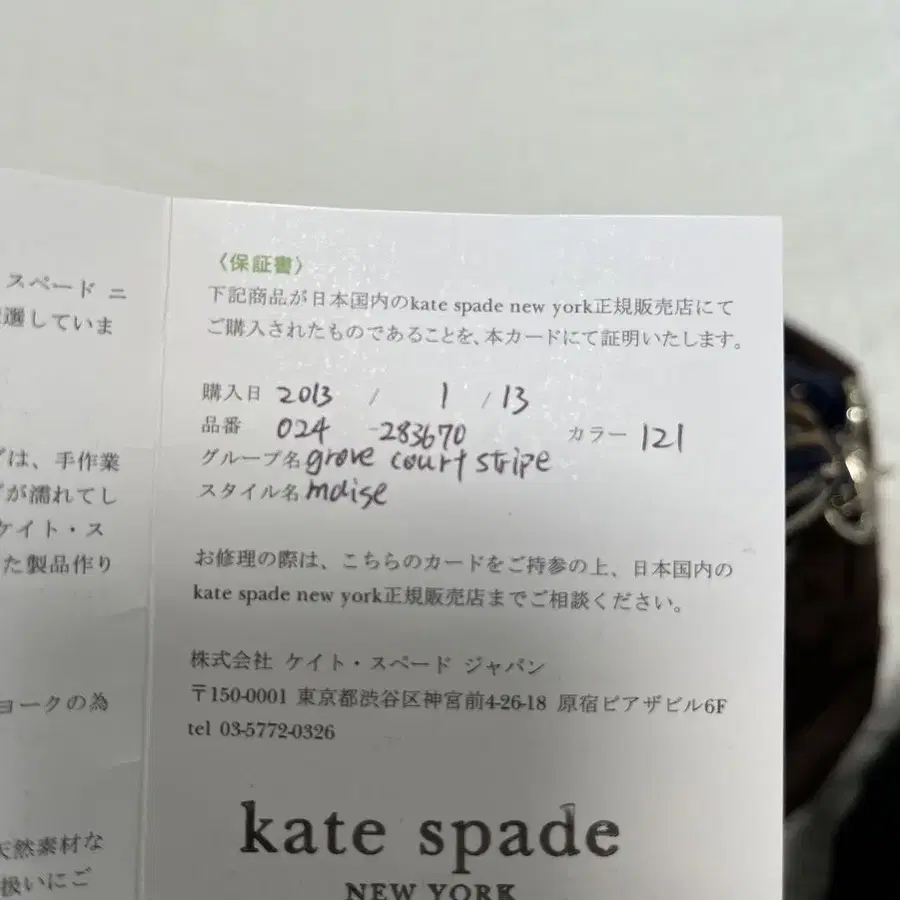 スペード ニ
選していま
は、手作業
が濡れてし
ケイト・ス
た製品作り
ヨークの為
天然素材な
扱いにご
〈保証書〉
下記商品が日本国内のkate spade new york正規販売店にて
ご購入されたものであることを、本カードにて証明いたします。
購入日 2013 / 1 / 13
品番 024 -283670 カラー 121
グループ名 grove court stripe
スタイル名 mdise
お修理の際は、こちらのカードをご持参の上、日本国内の
kate spade new york正規販売店までご相談ください。
株式会社 ケイト・スペード ジャパン
〒150-0001 東京都渋谷区神宮前4-26-18 原宿ピアザビル6F
tel 03-5772-0326
kate spade
NEW YORK